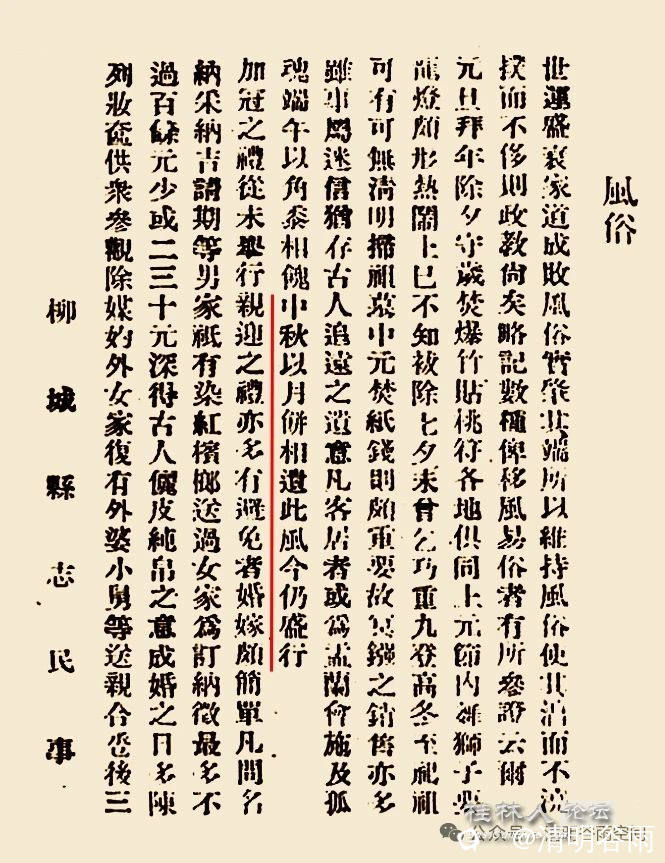 風俗
世運盛衰家道成敗風俗實肇其端所以維持風俗使其淸而不澆
撲而不侈則政敎尙矣略記數種俾移風易俗者有所參證云爾
元旦拜年除夕守歲焚爆竹貼桃符各地俱同上元節內舞獅子耍
龍燈頗形熱鬧上巳不知祓除七夕未曾乞巧重九登高冬至祀祖
可有可無淸明掃祖墓中元焚紙錢則頗重要故冥鏹之銷售亦多
雖事屬迷信猶存古人追遠之遺意凡客居者或爲盂蘭會施及孤
魂端午以角黍相餽中秋以月餅相遺此風今仍盛行
加冠之禮從未舉行親迎之禮亦多有避免者婚嫁頗簡單凡問名
納采納吉請期等男家祇有染紅檳榔送過女家爲訂納徵最多不
過百餘元少或二三十元深得古人儷皮純帛之意成婚之日多陳
列妝奩供衆參觀除媒妁外女家復有外婆小舅等送親合巹後三
柳城縣志民事
桂林人论坛
公众号·清明谷雨空间
@清明谷雨